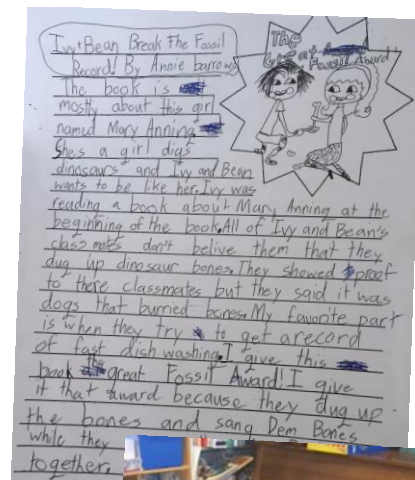 Ivy + Bean Break The Fossil
Record! By Annie barrows
The Great Fossil Award
The book is
mostly about this girl
named Mary Anning.
Shes a girl digs
dinosaurs and Ivy and Bean
wants to be like her. Ivy was
reading a book about Mary Anning at the
beginning of the book. All of Ivy and Bean's
class mates don't belive them that they
dug up dinosaur bones. They showed proof
to there classmates but they said it was
dogs that burried bones. My favorite part
is when they try to get a record
of fast dish washing. I give this
book the great Fossil Award! I give
it that award because they dug up
the bones and sang Dem Bones
while they
together.